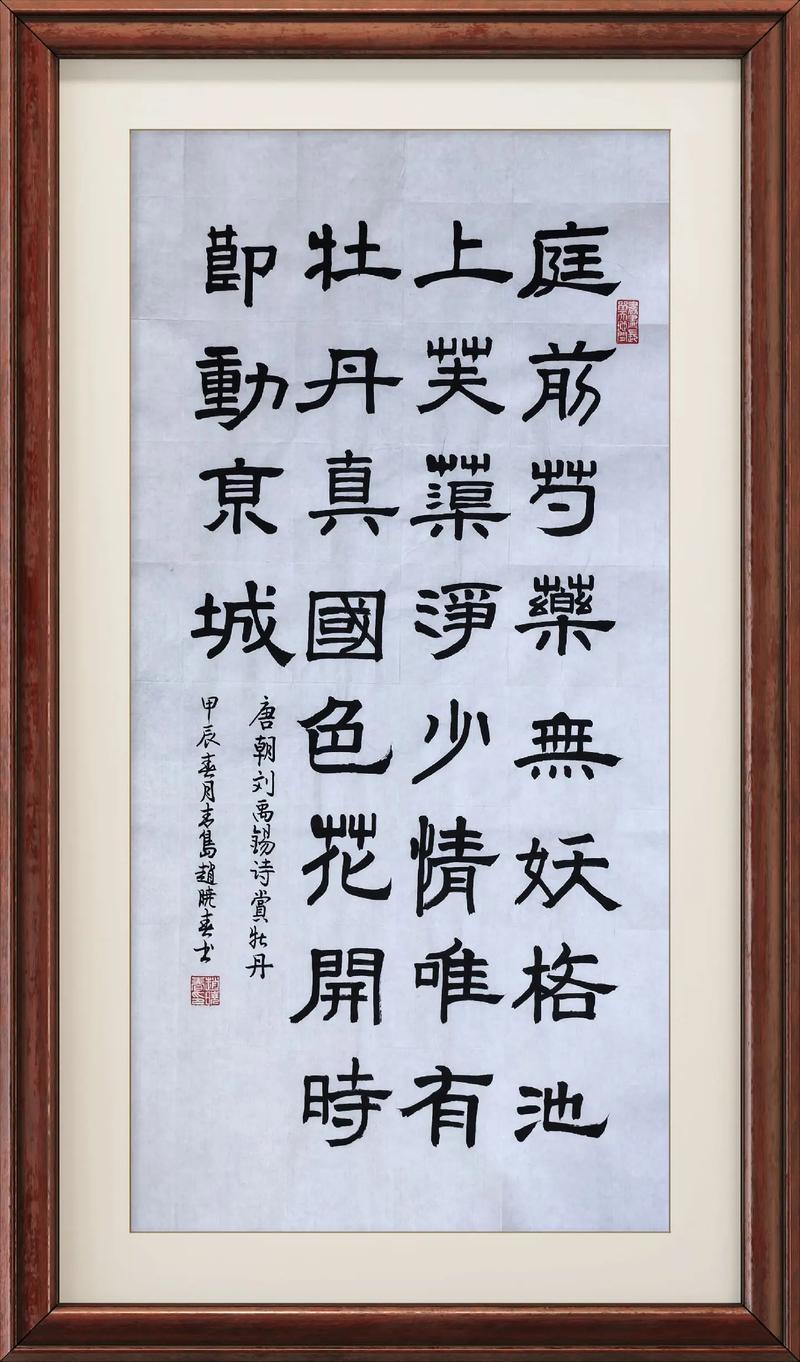 庭前芍藥無妖格池
上芙蕖淨少情唯有
牡丹真國色花開時
節動京城
唐朝刘禹锡诗賞牡丹
甲辰春月青島趙曉春书